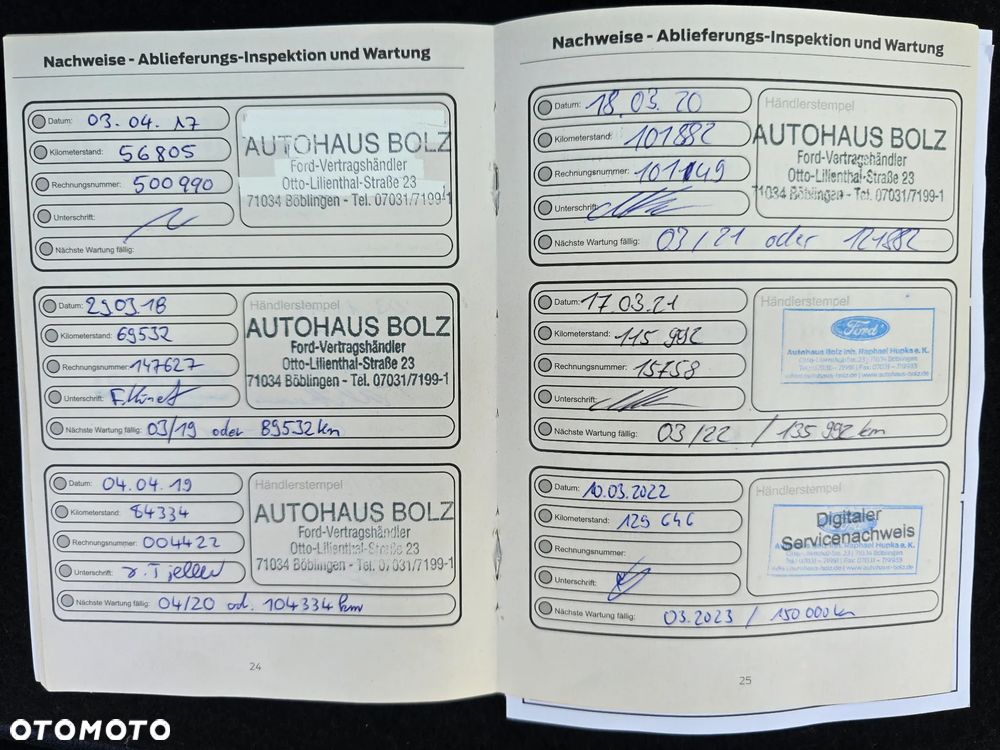 Nachweise - Ablieferungs-Inspektion und Wartung
Datum: 03.04.17
Kilometerstand: 56805
Rechnungsnummer: 500990
Unterschrift:
Nächste Wartung fällig:
AUTOHAUS BOLZ
Ford-Vertragshändler
Otto-Lilienthal-Straße 23
71034 Böblingen - Tel. 07031/7199-1
Datum: 29.03.18
Kilometerstand: 69532
Rechnungsnummer: 147627
Unterschrift:
Nächste Wartung fällig: 03/19 oder 89532 km
Händlerstempel
AUTOHAUS BOLZ
Ford-Vertragshändler
Otto-Lilienthal-Straße 23
71034 Böblingen - Tel. 07031/7199-1
Datum: 04.04.19
Kilometerstand: 84334
Rechnungsnummer: 004422
Unterschrift:
Nächste Wartung fällig: 04/20 od. 104334 km
Händlerstempel
AUTOHAUS BOLZ
Ford-Vertragshändler
Otto-Lilienthal-Straße 23
71034 Böblingen - Tel. 07031/7199-1
24
Nachweise - Ablieferungs-Inspektion und Wartung
Datum: 18.03.20
Kilometerstand: 101882
Rechnungsnummer:
Unterschrift:
Nächste Wartung fällig: 03/21 oder 121882
Händlerstempel
AUTOHAUS BOLZ
Ford-Vertragshändler
Otto-Lilienthal-Straße 23
71034 Böblingen - Tel. 07031/7199-1
Datum: 17.03.21
Kilometerstand: 115 992
Rechnungsnummer: 15758
Unterschrift:
Nächste Wartung fällig: 03/22 / 135 992 km
Händlerstempel
Ford
Autohaus Bolz Inh. Raphael Hupka e. K.
Otto-Lilienthal-Str. 23 | 71034 Böblingen
www.autohaus-bolz.de
Datum: 10.03.2022
Kilometerstand: 129 646
Rechnungsnummer:
Unterschrift:
Nächste Wartung fällig: 03.2023 / 150 000 km
Händlerstempel
Digitaler
Servicenachweis
25
OTOMOTO